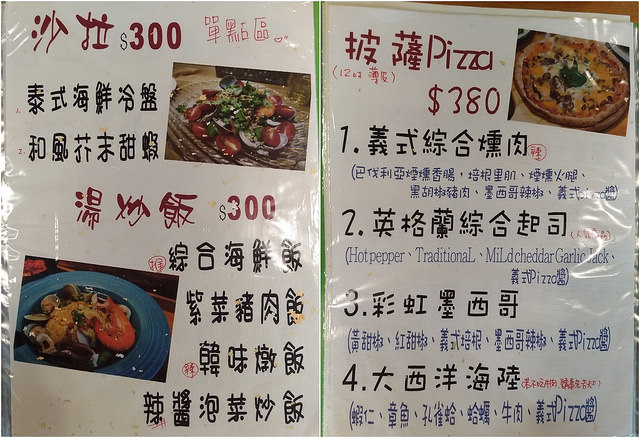 沙拉 $300 單點區
1. 泰式海鮮冷盤
2. 和風芥末甜蝦
湯炒飯 $300
綜合海鮮飯
紫菜豬肉飯
辣 韓味燉飯
辣醬泡菜炒飯
披薩Pizza
(12吋 薄皮)
$380
1. 義式綜合燻肉 辣
(巴伐利亞煙燻香腸，培根里肌、煙燻火腿、
黑胡椒豬肉、墨西哥辣椒、義式Pizza醬)
2. 英格蘭綜合起司
(Hot pepper、Traditional、Mild cheddar Garlic Jack、
義式Pizza醬)
3. 彩虹墨西哥
(黃甜椒、紅甜椒、義式培根、墨西哥辣椒、義式Pizza醬)
4. 大西洋海陸
(蝦仁、章魚、孔雀蛤、蛤蠣、牛肉、義式Pizza醬)